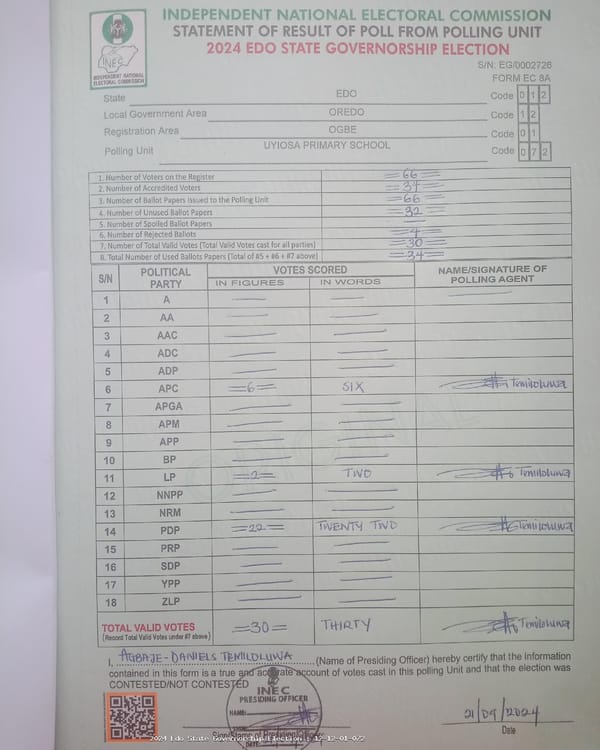 INDEPENDENT NATIONAL ELECTORAL COMMISSION
STATEMENT OF RESULT OF POLL FROM POLLING UNIT
2024 EDO STATE GOVERNORSHIP ELECTION
INEC
INDEPENDENT NATIONAL
ELECTORAL COMMISSION
S/N: EG/0002726
FORM EC 8A
State EDO Code 0 1 2
Local Government Area OREDO Code 1 2
Registration Area OGBE Code 0 1
Polling Unit UYIOSA PRIMARY SCHOOL Code 0 7 2
1. Number of Voters on the Register =66=
2. Number of Accredited Voters =34=
3. Number of Ballot Papers Issued to the Polling Unit =66=
4. Number of Unused Ballot Papers =32=
5. Number of Spoiled Ballot Papers —
6. Number of Rejected Ballots =4=
7. Number of Total Valid Votes (Total Valid Votes cast for all parties) =30=
8. Total Number of Used Ballots Papers (Total of #5 + #6 + #7 above) =34=
S/N POLITICAL PARTY VOTES SCORED NAME/SIGNATURE OF POLLING AGENT
IN FIGURES IN WORDS
1 A — — —
2 AA — —
3 AAC — —
4 ADC — —
5 ADP — —
6 APC =6= SIX Temiloluwa
7 APGA — —
8 APM — —
9 APP — —
10 BP — —
11 LP =2= TWO Temiloluwa
12 NNPP — —
13 NRM — —
14 PDP =22= TWENTY TWO Temiloluwa
15 PRP — —
16 SDP — —
17 YPP — —
18 ZLP — —
TOTAL VALID VOTES =30= THIRTY Temiloluwa
(Record Total Valid Votes under #7 above)
I, AGBAJE-DANIELS TEMILOLUWA (Name of Presiding Officer) hereby certify that the information
contained in this form is a true and accurate account of votes cast in this polling Unit and that the election was
CONTESTED/NOT CONTESTED
INEC
PRESIDING OFFICER
NAME:
DATE:
21/09/2024
Date
2024 Edo State Governorship Election
12-12-01-072